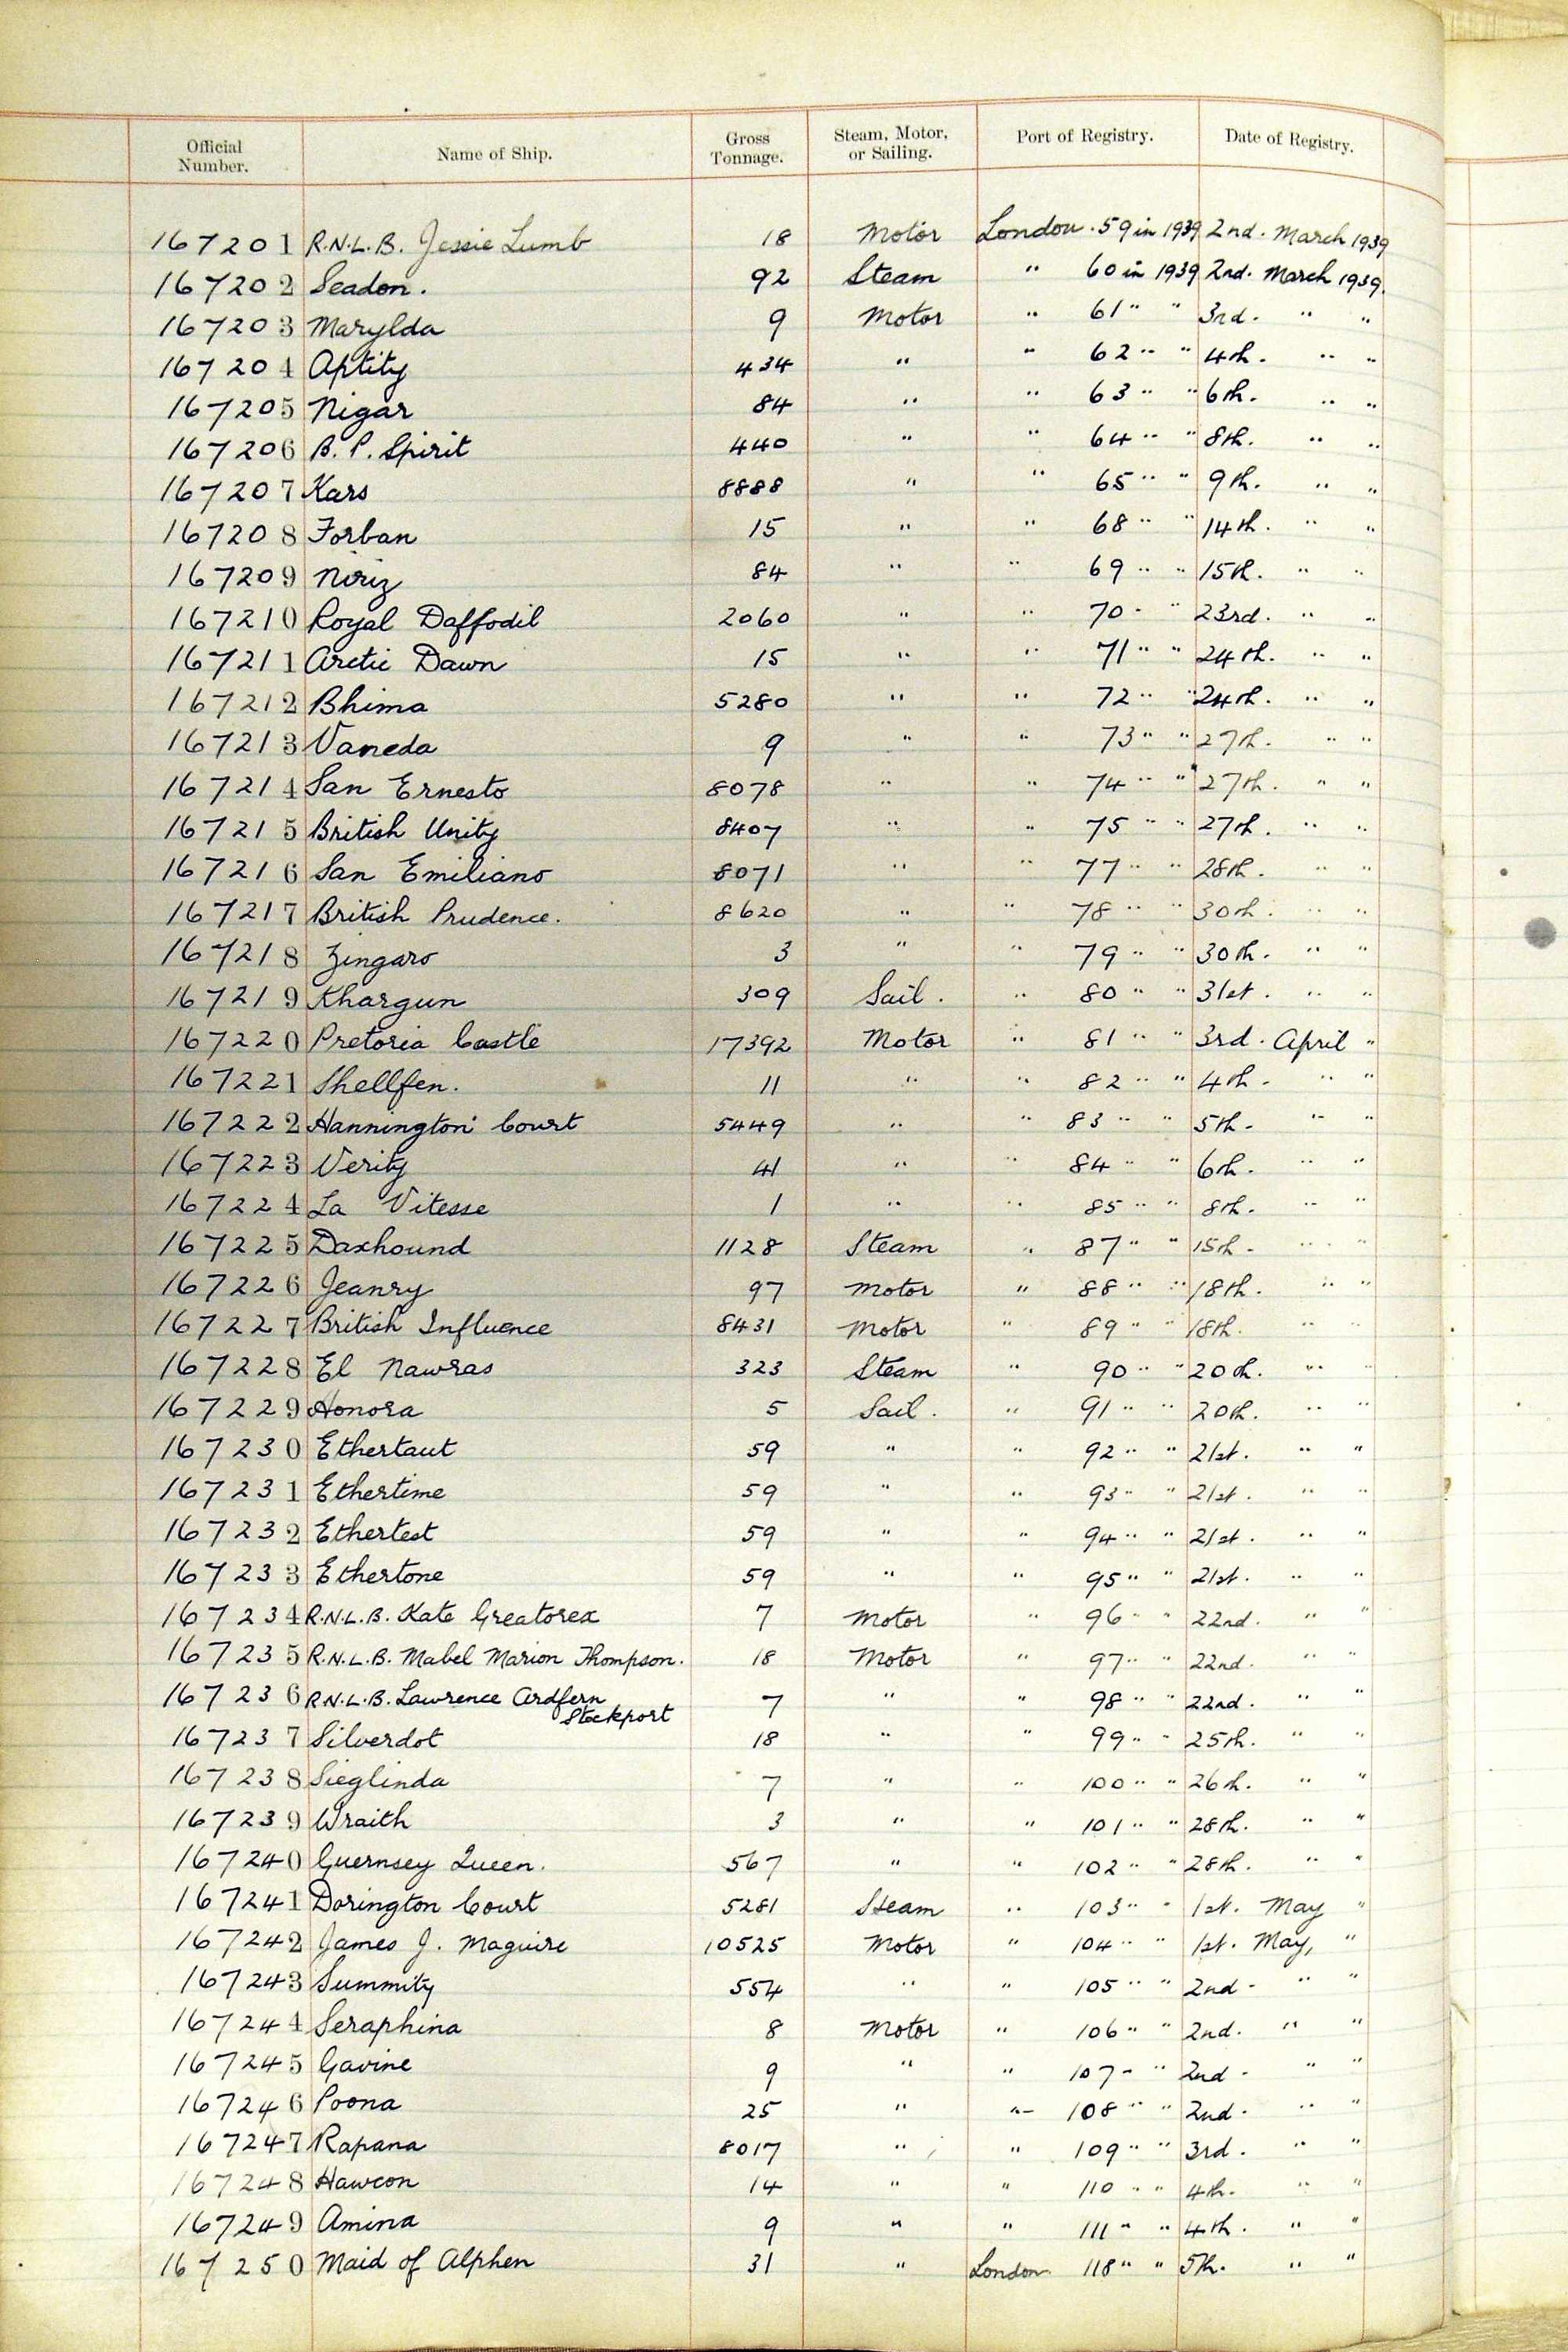 Official Number. Name of Ship. Gross Tonnage. Steam, Motor, or Sailing. Port of Registry. Date of Registry.
167201 R.N.L.B. Jessie Lumb 18 Motor London. 59 in 1939 2nd. March 1939
167202 Seadon. 92 Steam " 60 in 1939 2nd. March 1939.
167203 Marylda 9 Motor " 61 " " 3rd. " "
167204 Aptity 434 " " 62 " " 4th. " "
167205 Nigar 84 " " 63 " " 6th. " "
167206 B. P. Spirit 440 " " 64 " " 8th. " "
167207 Kars 8888 " " 65 " " 9th. " "
167208 Forban 15 " " 68 " " 14th. " "
167209 Niriz 84 " " 69 " " 15th. " "
167210 Royal Daffodil 2060 " " 70 " " 23rd. " "
167211 Arctic Dawn 15 " " 71 " " 24th. " "
167212 Bhima 5280 " " 72 " " 24th. " "
167213 Vaneda 9 " " 73 " " 27th. " "
167214 San Ernesto 8078 " " 74 " " 27th. " "
167215 British Unity 8407 " " 75 " " 27th. " "
167216 San Emiliano 8071 " " 77 " " 28th. " "
167217 British Prudence. 8620 " " 78 " " 30th. " "
167218 Zingaro 3 " " 79 " " 30th. " "
167219 Khargun 309 Sail. " 80 " " 31st. " "
167220 Pretoria Castle 17392 Motor " 81 " " 3rd. April "
167221 Shellfen. 11 " " 82 " " 4th. " "
167222 Hannington Court 5449 " " 83 " " 5th. " "
167223 Verity 41 " " 84 " " 6th. " "
167224 La Vitesse 1 " " 85 " " 8th. " "
167225 Daxhound 1128 Steam " 87 " " 15th. " "
167226 Jeanry 97 Motor " 88 " " 18th. " "
167227 British Influence 8431 Motor " 89 " " 18th. " "
167228 El Nawras 323 Steam " 90 " " 20th. " "
167229 Honora 5 Sail. " 91 " " 20th. " "
167230 Ethertaut 59 " " 92 " " 21st. " "
167231 Ethertime 59 " " 93 " " 21st. " "
167232 Ethertest 59 " " 94 " " 21st. " "
167233 Ethertone 59 " " 95 " " 21st. " "
167234 R.N.L.B. Kate Greatorex 7 Motor " 96 " " 22nd. " "
167235 R.N.L.B. Mabel Marion Thompson. 18 Motor " 97 " " 22nd. " "
167236 R.N.L.B. Lawrence Ardfern 7 " " 98 " " 22nd. " "
Stockport
167237 Silverdot 18 " " 99 " " 25th. " "
167238 Sieglinda 7 " " 100 " " 26th. " "
167239 Wraith 3 " " 101 " " 28th. " "
167240 Guernsey Queen. 567 " " 102 " " 28th. " "
167241 Dorington Court 5281 Steam " 103 " " 1st. May "
167242 James J. Maguire 10525 Motor " 104 " " 1st. May, "
167243 Summity 554 " " 105 " " 2nd " "
167244 Seraphina 8 Motor " 106 " " 2nd. " "
167245 Gavine 9 " " 107 " " 2nd " "
167246 Poona 25 " " 108 " " 2nd. " "
167247 Rapana 8017 " " 109 " " 3rd. " "
167248 Hawcon 14 " " 110 " " 4th. " "
167249 Amina 9 " " 111 " " 4th. " "
167250 Maid of Alphen 31 " London 118 " " 5th. " "